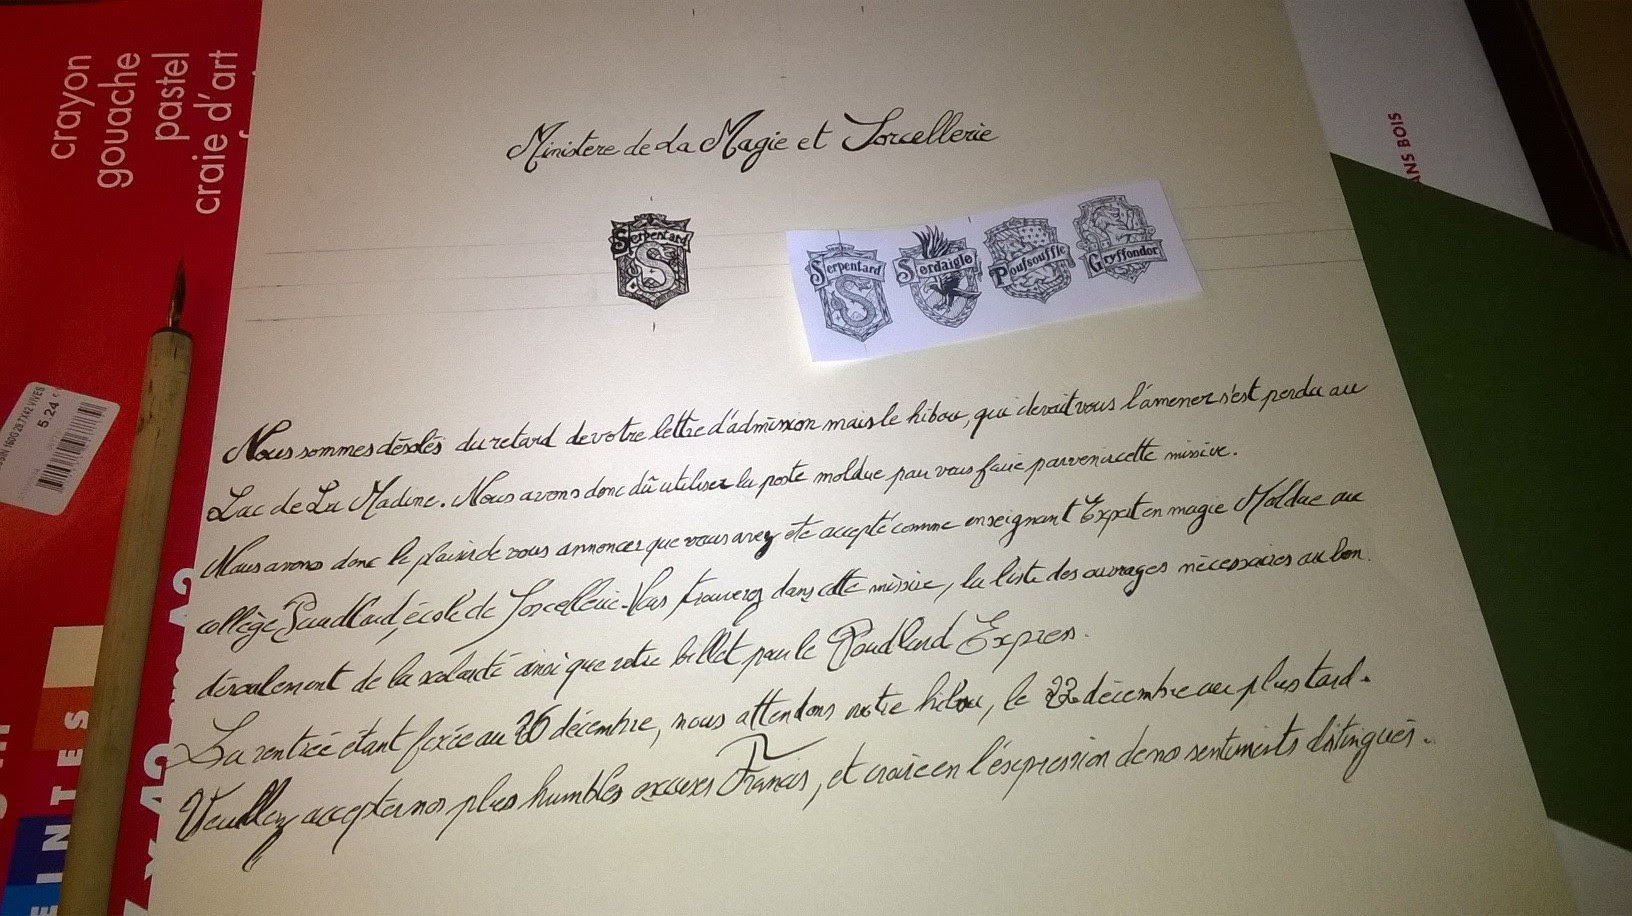 crayon
gouache
pastel
craie d'art
Ministere de La Magie et Sorcellerie
Serpentard
Serpentard
Serdaigle
Poufsouffle
Gryffondor
ANS BOIS
5.24
Nous sommes désolés du retard de votre lettre d'admission mais le hibou, qui devait vous l'amener s'est perdu au
Lac de La Madine. Nous avons donc dû utiliser la poste moldue pour vous faire parvenir cette missive.
Nous avons donc le plaisir de vous annoncer que vous avez été accepté comme enseignant Expert en magie Moldue au
collège Poudlard, école de Sorcellerie. Vous trouverez dans cette missive, la liste des ouvrages nécessaires au bon
déroulement de la scolarité ainsi que votre billet pour le Poudlard Express.
La rentrée étant fixée au 26 décembre, nous attendons votre hibou, le 22 décembre au plus tard.
Veuillez accepter nos plus humbles excuses Francis, et croire en l'expression de nos sentiments distingués.